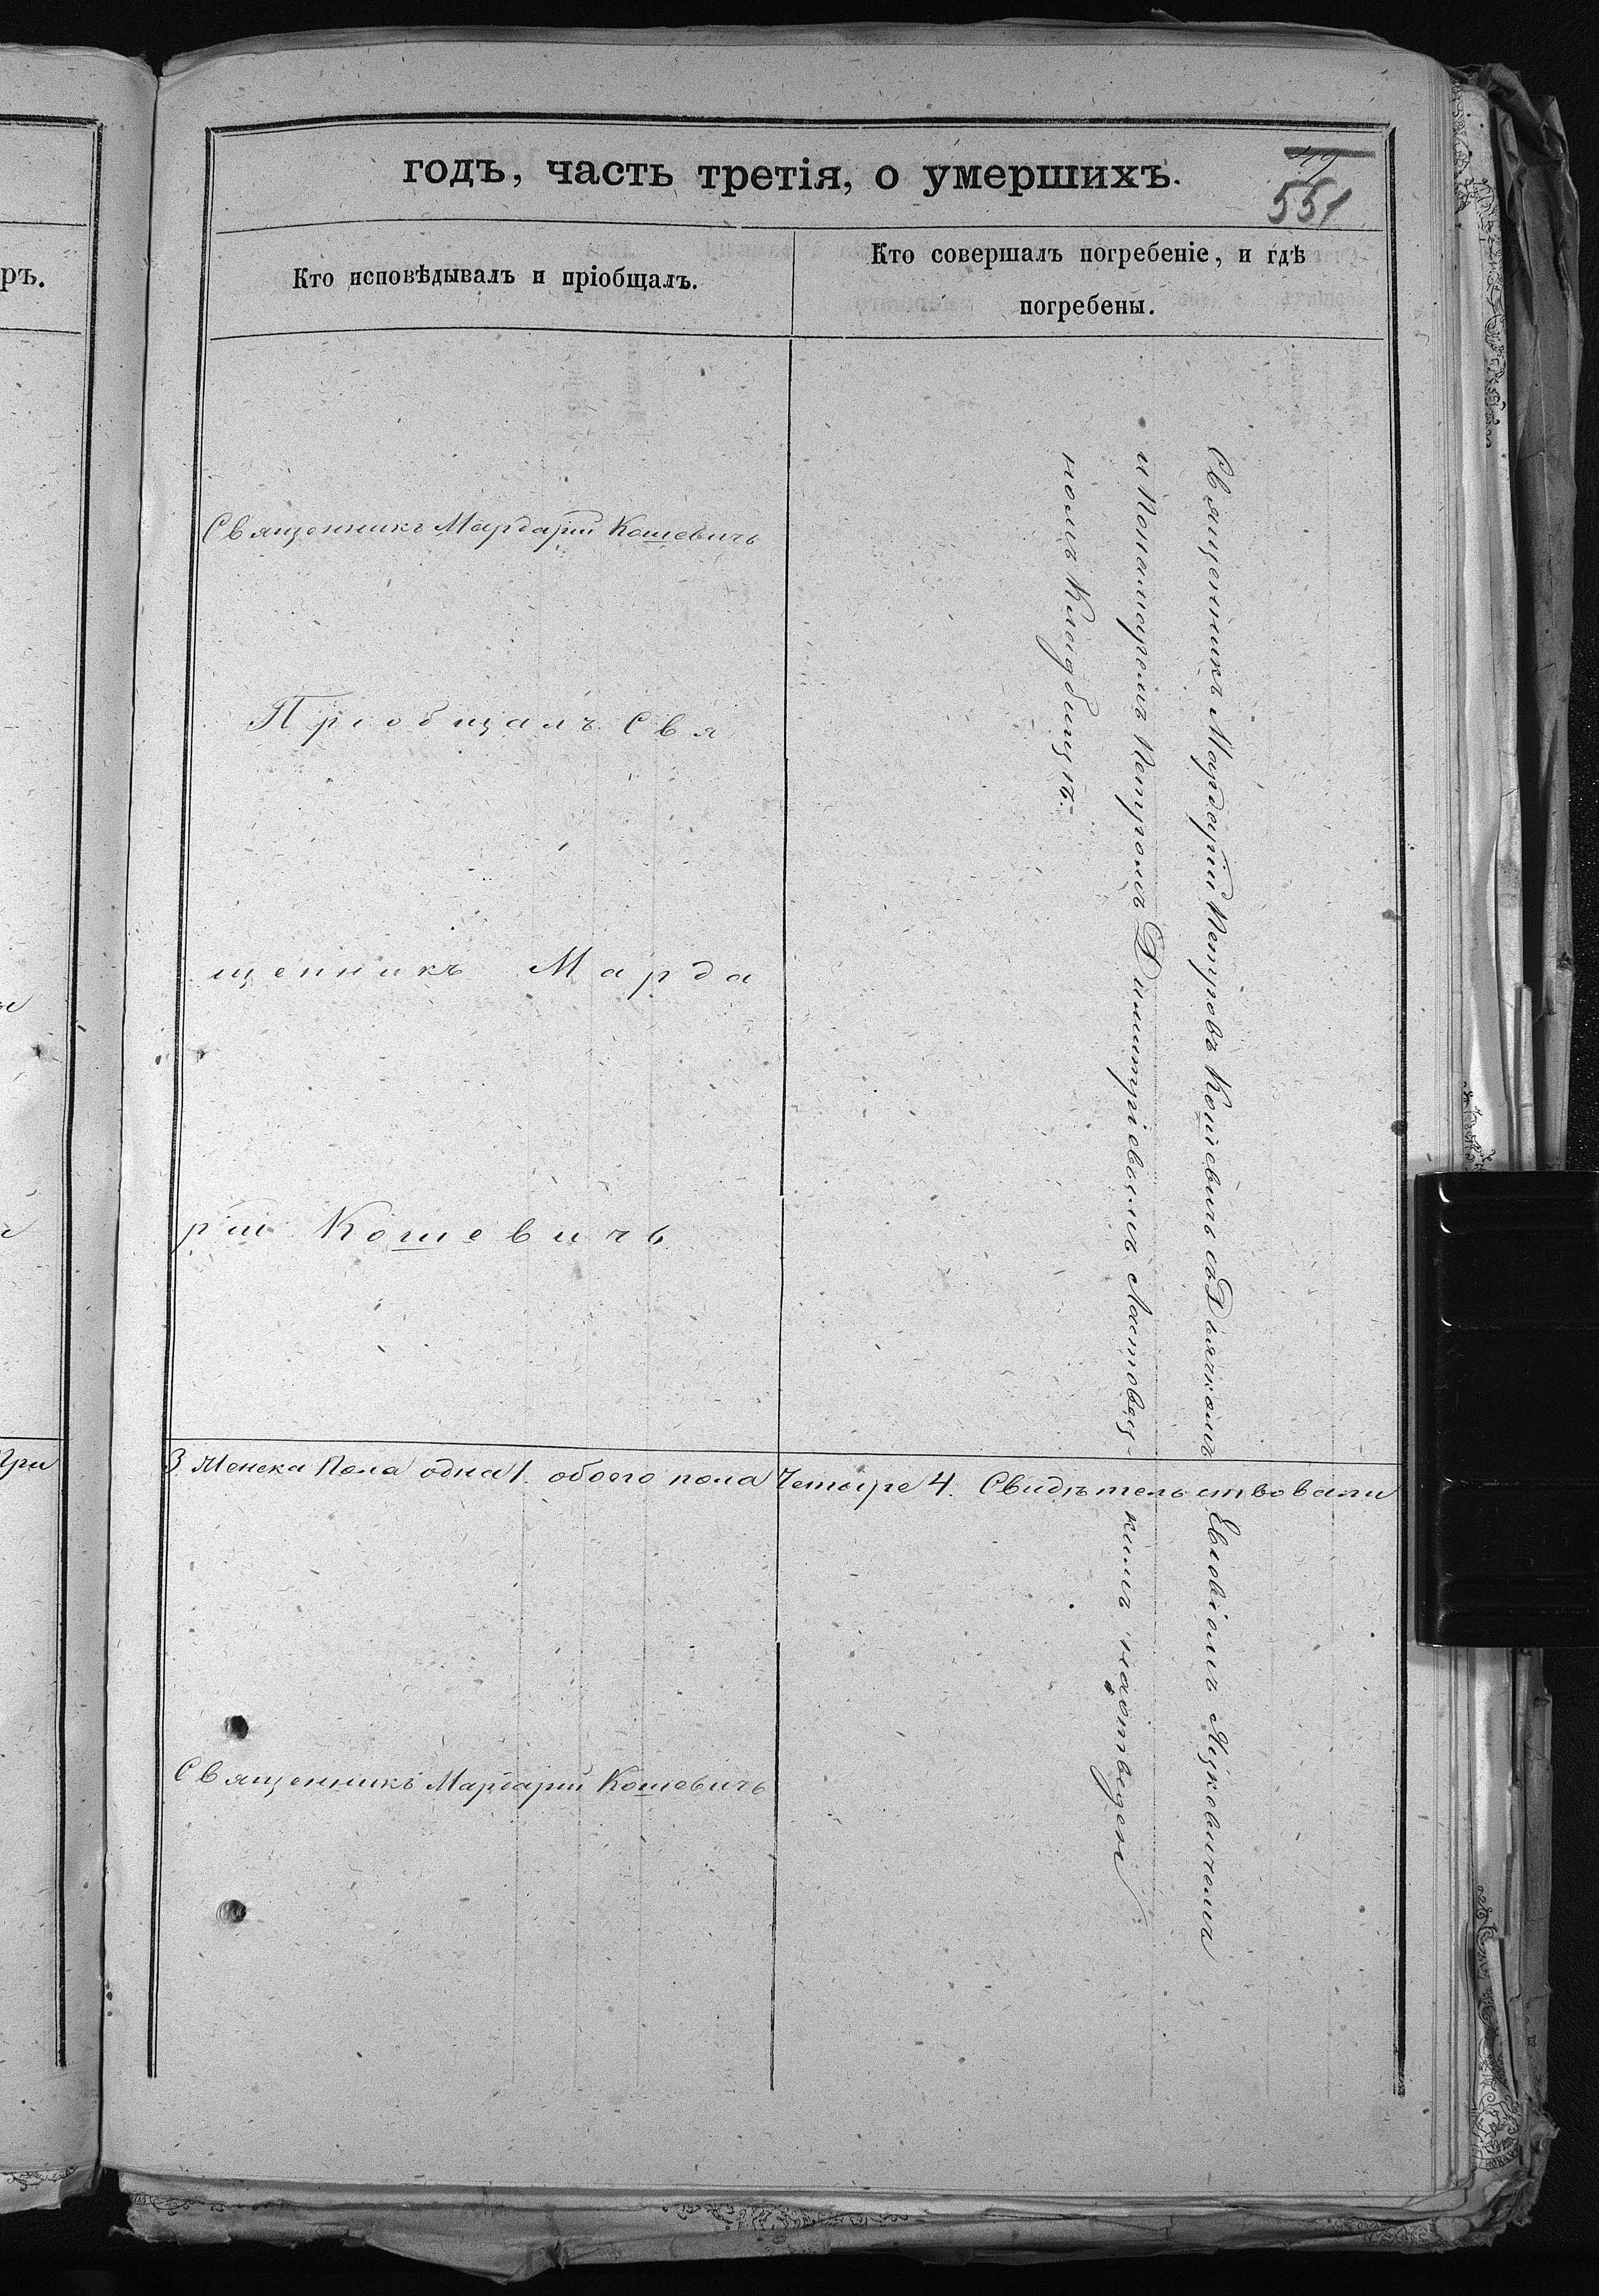 годъ, часть третія, о умершихъ.
49
551
Кто исповѣдывалъ и пріобщалъ.
Кто совершалъ погребеніе, и гдѣ
погребены.
Священникъ Мардарій Кошевичъ
Пріобщалъ Свя
щенникъ Марда
рій Кошевичъ
Священникъ Мардарій Петровъ Кошевичъ съ Дьячкомъ
и Пономаремъ Петромъ Димитріевымъ Мастовец-
номъ Кладбищѣ.
3 Женска Пола одна 1. обоего пола Четыре 4. Свидѣтельствовали
кимъ
Священникъ Мардарій Кошевичъ
ръ.
При